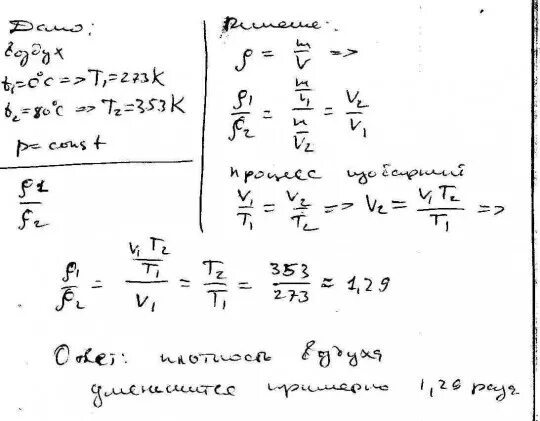 Дано:
воздух
t₁=0°C => T₁=273K
t₂=80°C => T₂=353K
p=const
ρ1/ρ₂
Решение:
ρ = m/V =>
ρ₁/ρ₂ = (m/V₁)/(m/V₂) = V₂/V₁
процесс изобарный
V₁/T₁ = V₂/T₂ => V₂ = V₁T₂/T₁ =>
ρ₁/ρ₂ = (V₁T₂/T₁)/V₁ = T₂/T₁ = 353/273 ≈ 1,29
Ответ: плотность воздуха
уменьшится примерно 1,29 раза